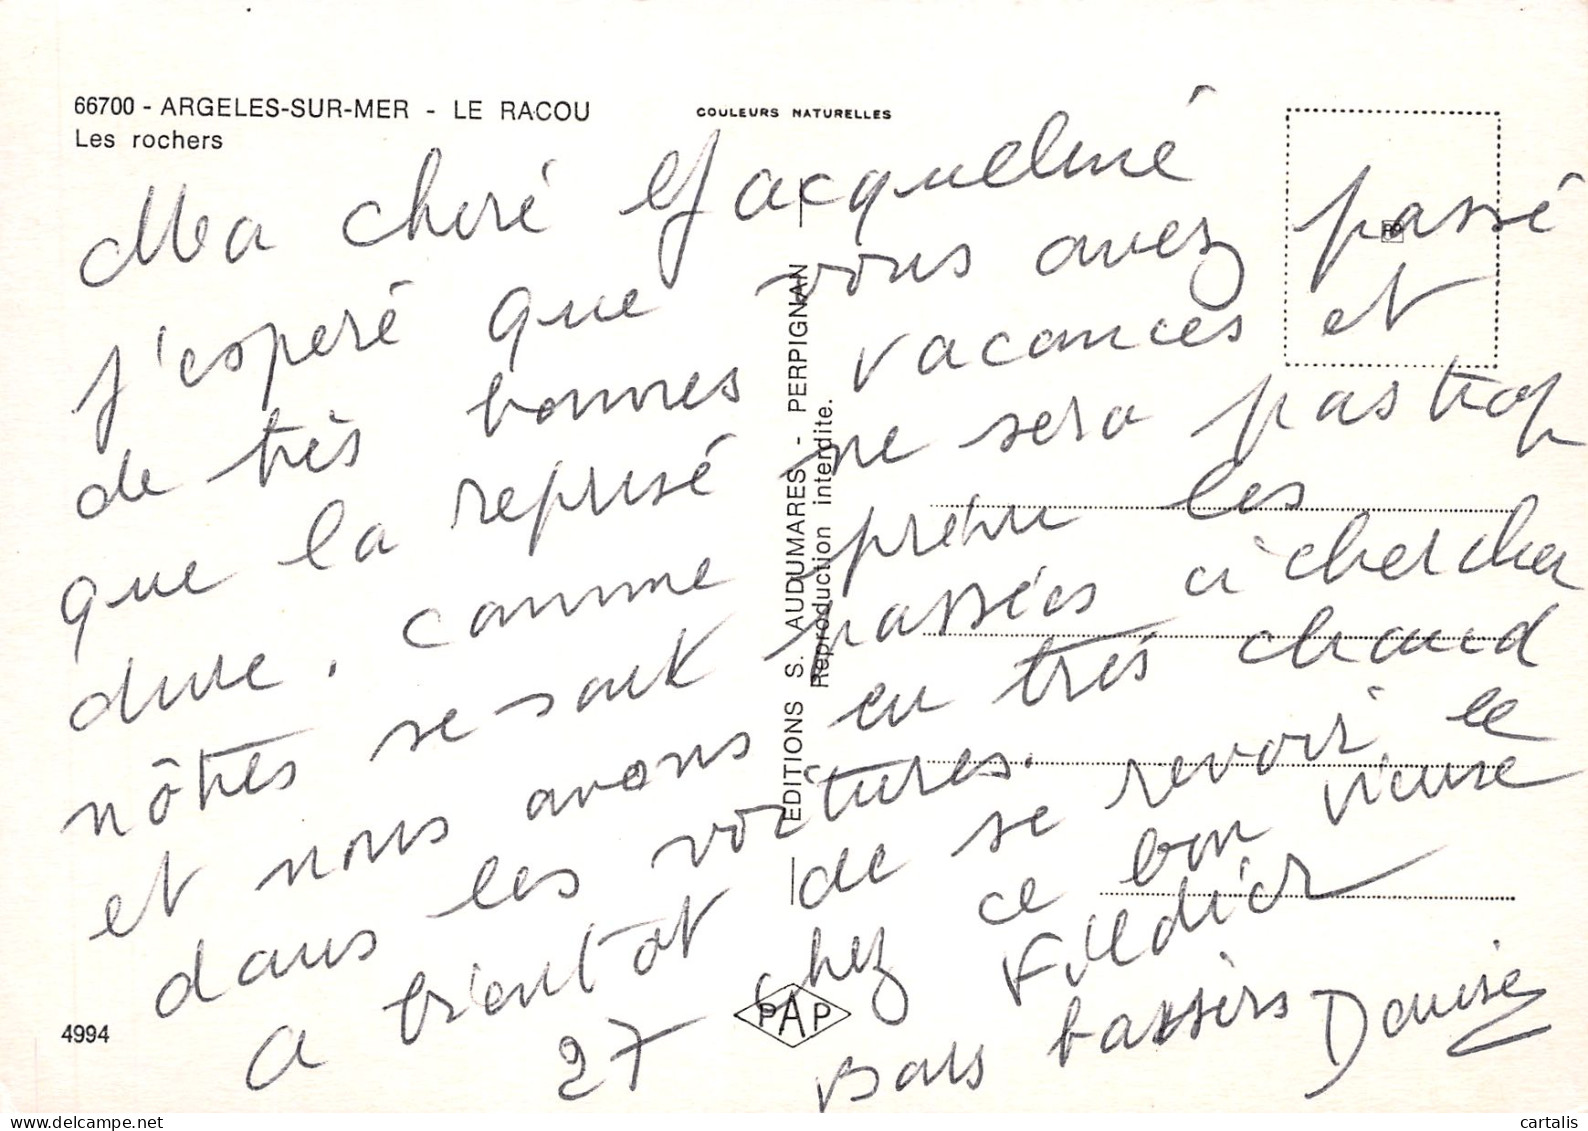 66700 - ARGELES-SUR-MER - LE RACOU
Les rochers
COULEURS NATURELLES
Ma cheré Jacqueliné
j'esperé que vous avez passé
de très bonnes vacances et
que la reprisé ne sera pas trop
dure. comme prévu les
nôtres se sont passées à chercher
et nous avons eu très chaud
dans les voitures.
a bientot de se revoir le
27 chez ce bon vieuse
Bons baisers Denise
EDITIONS S. AUDUMARES - PERPIGNAN
Reproduction interdite.
PAP
4994
www.delcampe.net
cartalis